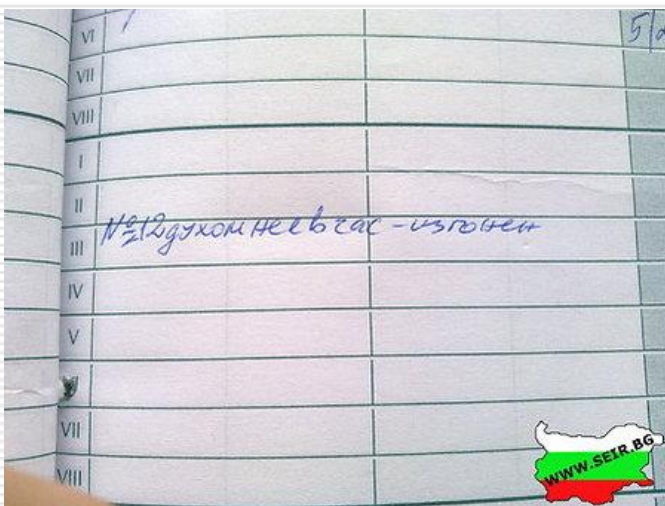 VI
5
VII
VIII
I
II
№12 духом не е в час - изгонен
III
IV
V
VII
VIII
WWW.SEIR.BG